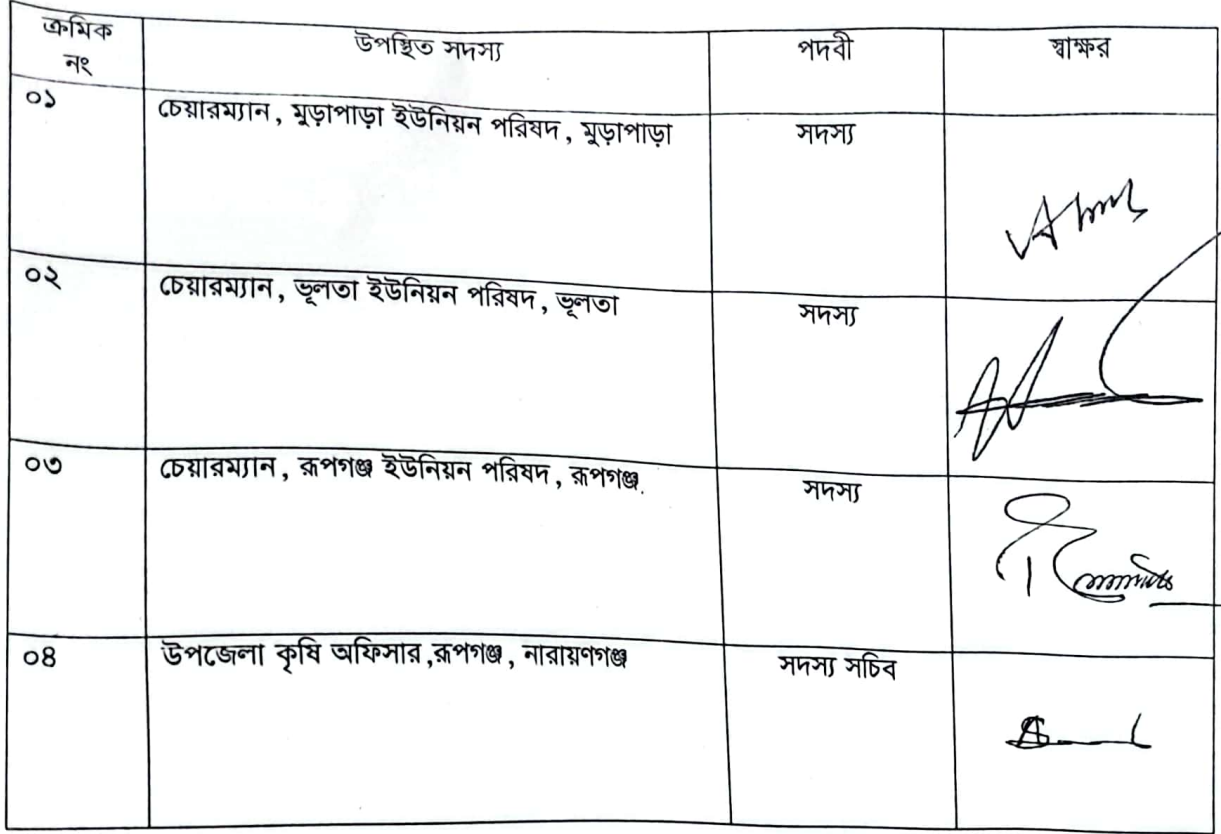 ক্রমিক নং উপস্থিত সদস্য পদবী স্বাক্ষর
০১ চেয়ারম্যান, মুড়াপাড়া ইউনিয়ন পরিষদ, মুড়াপাড়া সদস্য
০২ চেয়ারম্যান, ভূলতা ইউনিয়ন পরিষদ, ভূলতা সদস্য
০৩ চেয়ারম্যান, রূপগঞ্জ ইউনিয়ন পরিষদ, রূপগঞ্জ. সদস্য
০৪ উপজেলা কৃষি অফিসার,রূপগঞ্জ, নারায়ণগঞ্জ সদস্য সচিব